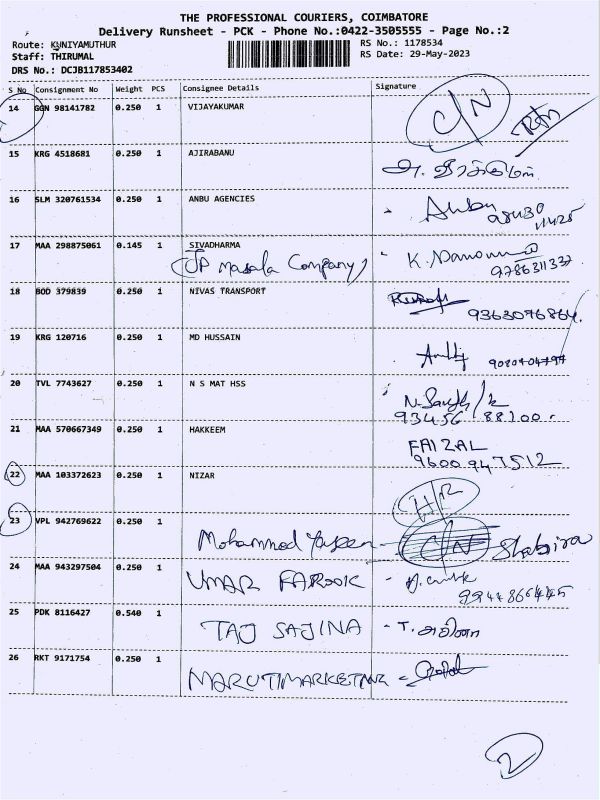 THE PROFESSIONAL COURIERS, COIMBATORE
Delivery Runsheet - PCK - Phone No.:0422-3505555 - Page No.:2
Route: KUNIYAMUTHUR
RS No.: 1178534
Staff: THIRUMAL
RS Date: 29-May-2023
DRS No.: DCJB117853402
S No Consignment No Weight PCS Consignee Details Signature
14 GGN 98141782 0.250 1 VIJAYAKUMAR C/N
15 KRG 4518681 0.250 1 AJIRABANU
16 SLM 320761534 0.250 1 ANBU AGENCIES Anbu
98430
11425
17 MAA 298875061 0.145 1 SIVADHARMA
(JP Masala Company)
9786311337
18 BOD 379839 0.250 1 NIVAS TRANSPORT
9363096864.
19 KRG 120716 0.250 1 MD HUSSAIN
20 TVL 7743627 0.250 1 N S MAT HSS
93456 88200.
21 MAA 570667349 0.250 1 HAKKEEM FAIZAL
9600947512
22 MAA 103372623 0.250 1 NIZAR
23 VPL 942769622 0.250 1
Mohammed Yaseen - C/N Shabira
24 MAA 943297504 0.250 1
UMAR FAROOK
25 PDK 8116427 0.540 1
TAJ SAJINA - T.
26 RKT 9171754 0.250 1
MARUTI MARKETING -
2